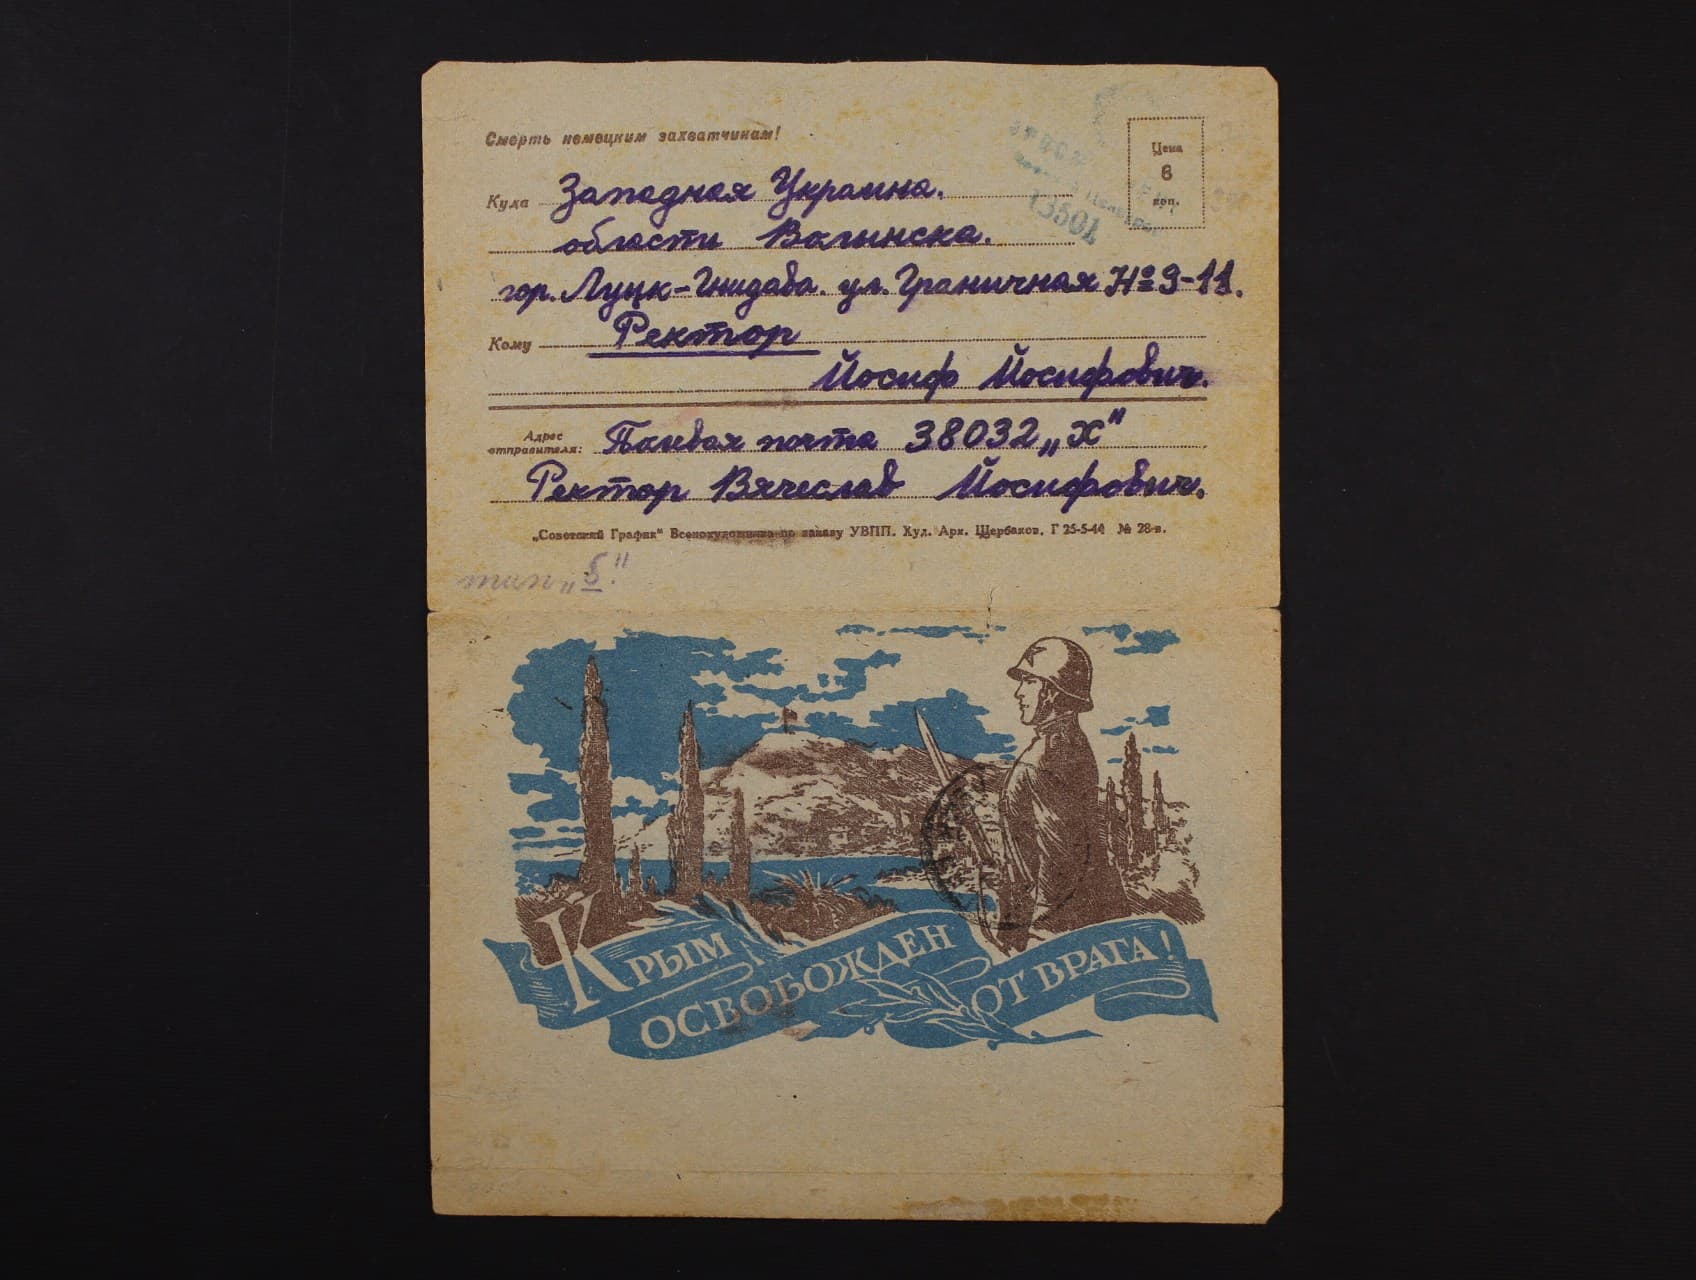 Смерть немецким захватчикам!
Цена
6
коп.
Куда Западная Украина.
области Волынска.
13501
гор. Луцк-Гнидава. ул. Граничная № 9-11.
Кому Ректор
Йосиф Йосифович.
Адрес
отправителя: почта 38032 „Х"
Ректор Вячеслав Йосифович.
„Советский График" Всекохудожника по заказу УВПП. Худ. Арк. Щербаков. Г 25-5-44 № 28-в.
КРЫМ
ОСВОБОЖДЕН
ОТ ВРАГА!